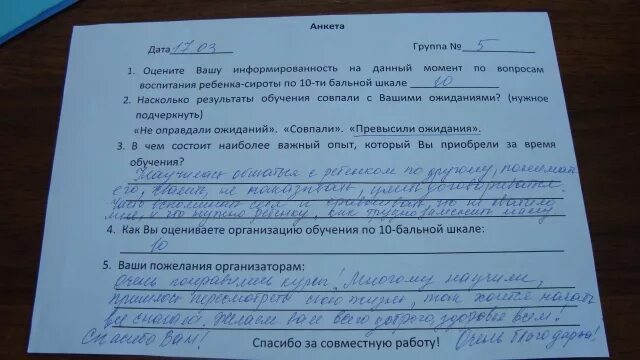 Анкета
Дата 17.03 Группа № 5
1. Оцените Вашу информированность на данный момент по вопросам
воспитания ребенка-сироты по 10-ти бальной шкале 10
2. Насколько результаты обучения совпали с Вашими ожиданиями? (нужное
подчеркнуть)
«Не оправдали ожиданий». «Совпали». «Превысили ожидания».
3. В чем состоит наиболее важный опыт, который Вы приобрели за время
обучения?
Научилась общаться с ребенком по другому, понимать
его, не наказывать, уметь договариваться.
Часто вспоминать себя и что не хватало
мне, и что нужно ребенку, как трудно заменить маму
4. Как Вы оцениваете организацию обучения по 10-бальной шкале:
10
5. Ваши пожелания организаторам:
Очень понравились курсы! Многому научили,
пришлось пересмотреть свою жизнь, так хочется начать
все сначала. Желаем вам всего доброго, здоровья всем!
Спасибо Вам! Очень благодарна!
Спасибо за совместную работу!